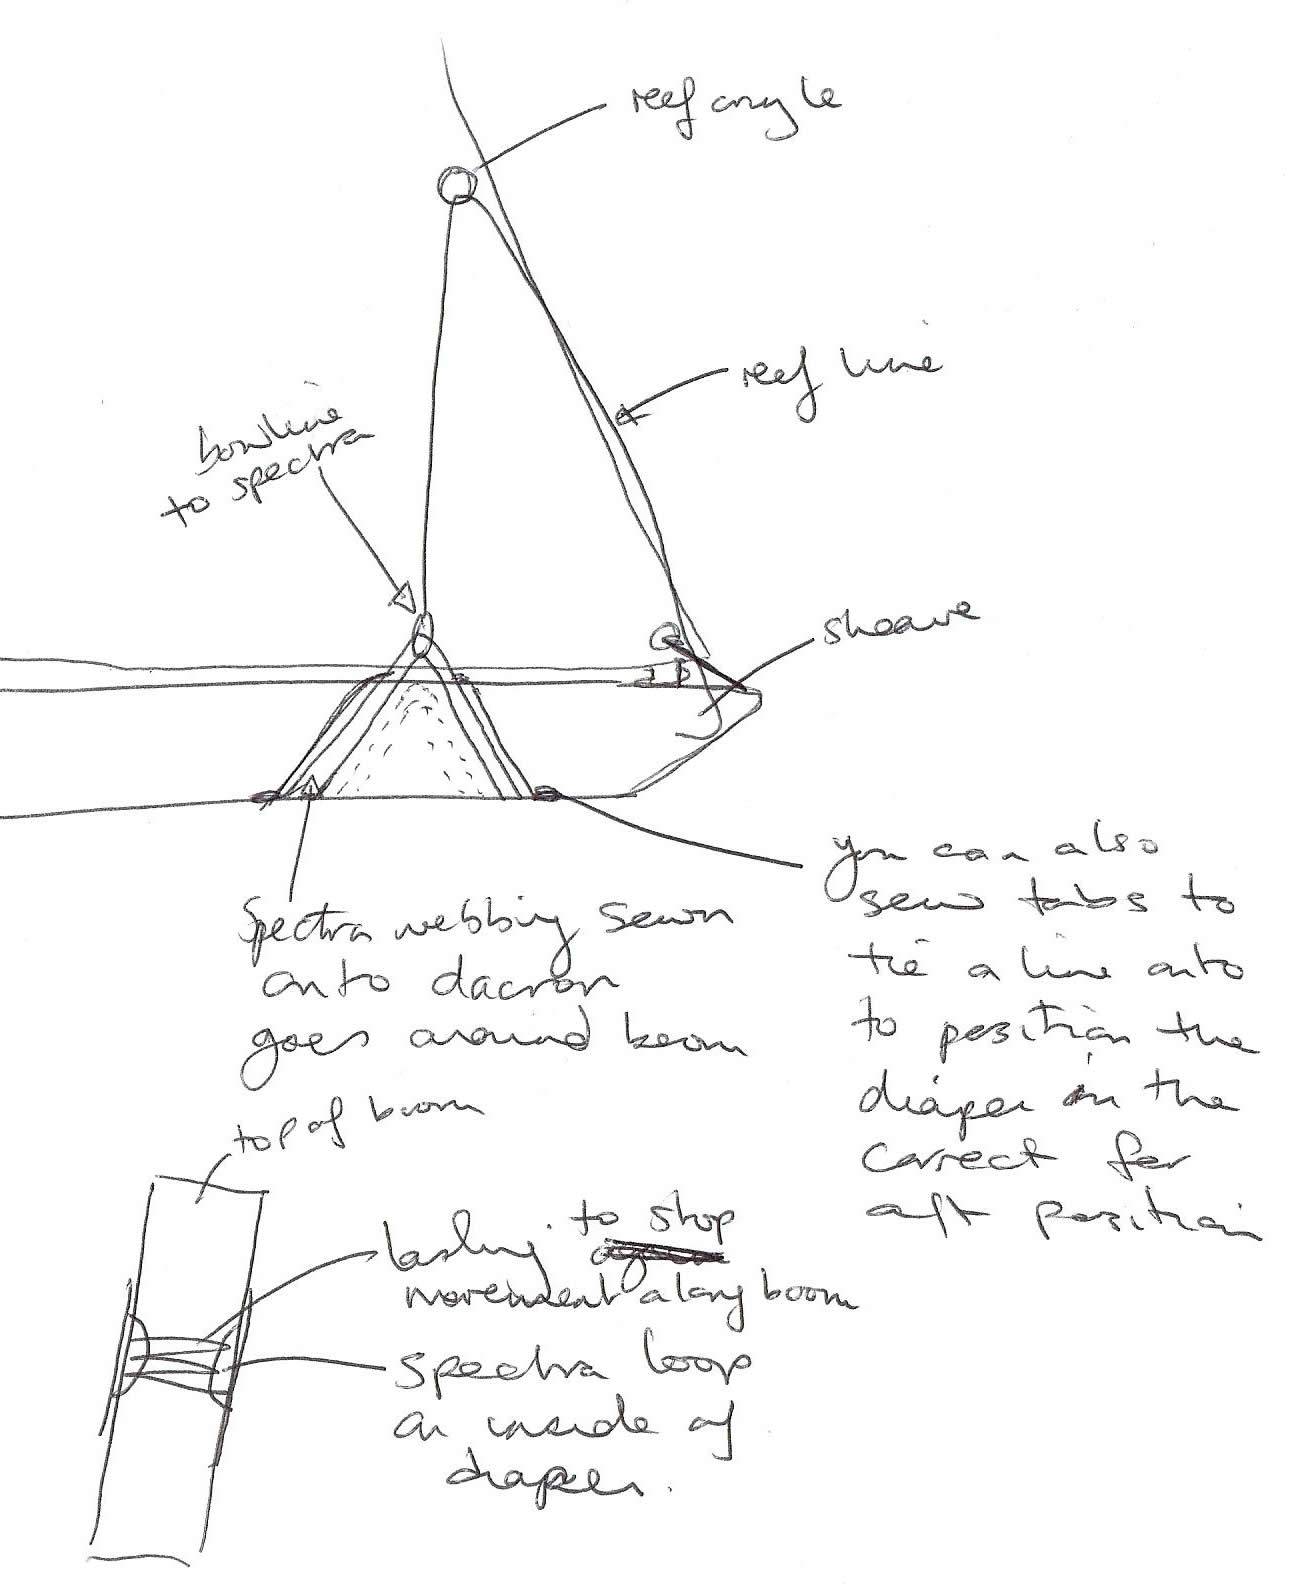 reef cringle
reef line
bowline
to spectra
sheave
you can also
sew tabs to
tie a line onto
to position the
diaper in the
correct for
aft position
Spectra webbing sewn
onto dacron
goes around boom
top of boom
lashing to stop
movement along boom
spectra loop
on inside of
diaper.